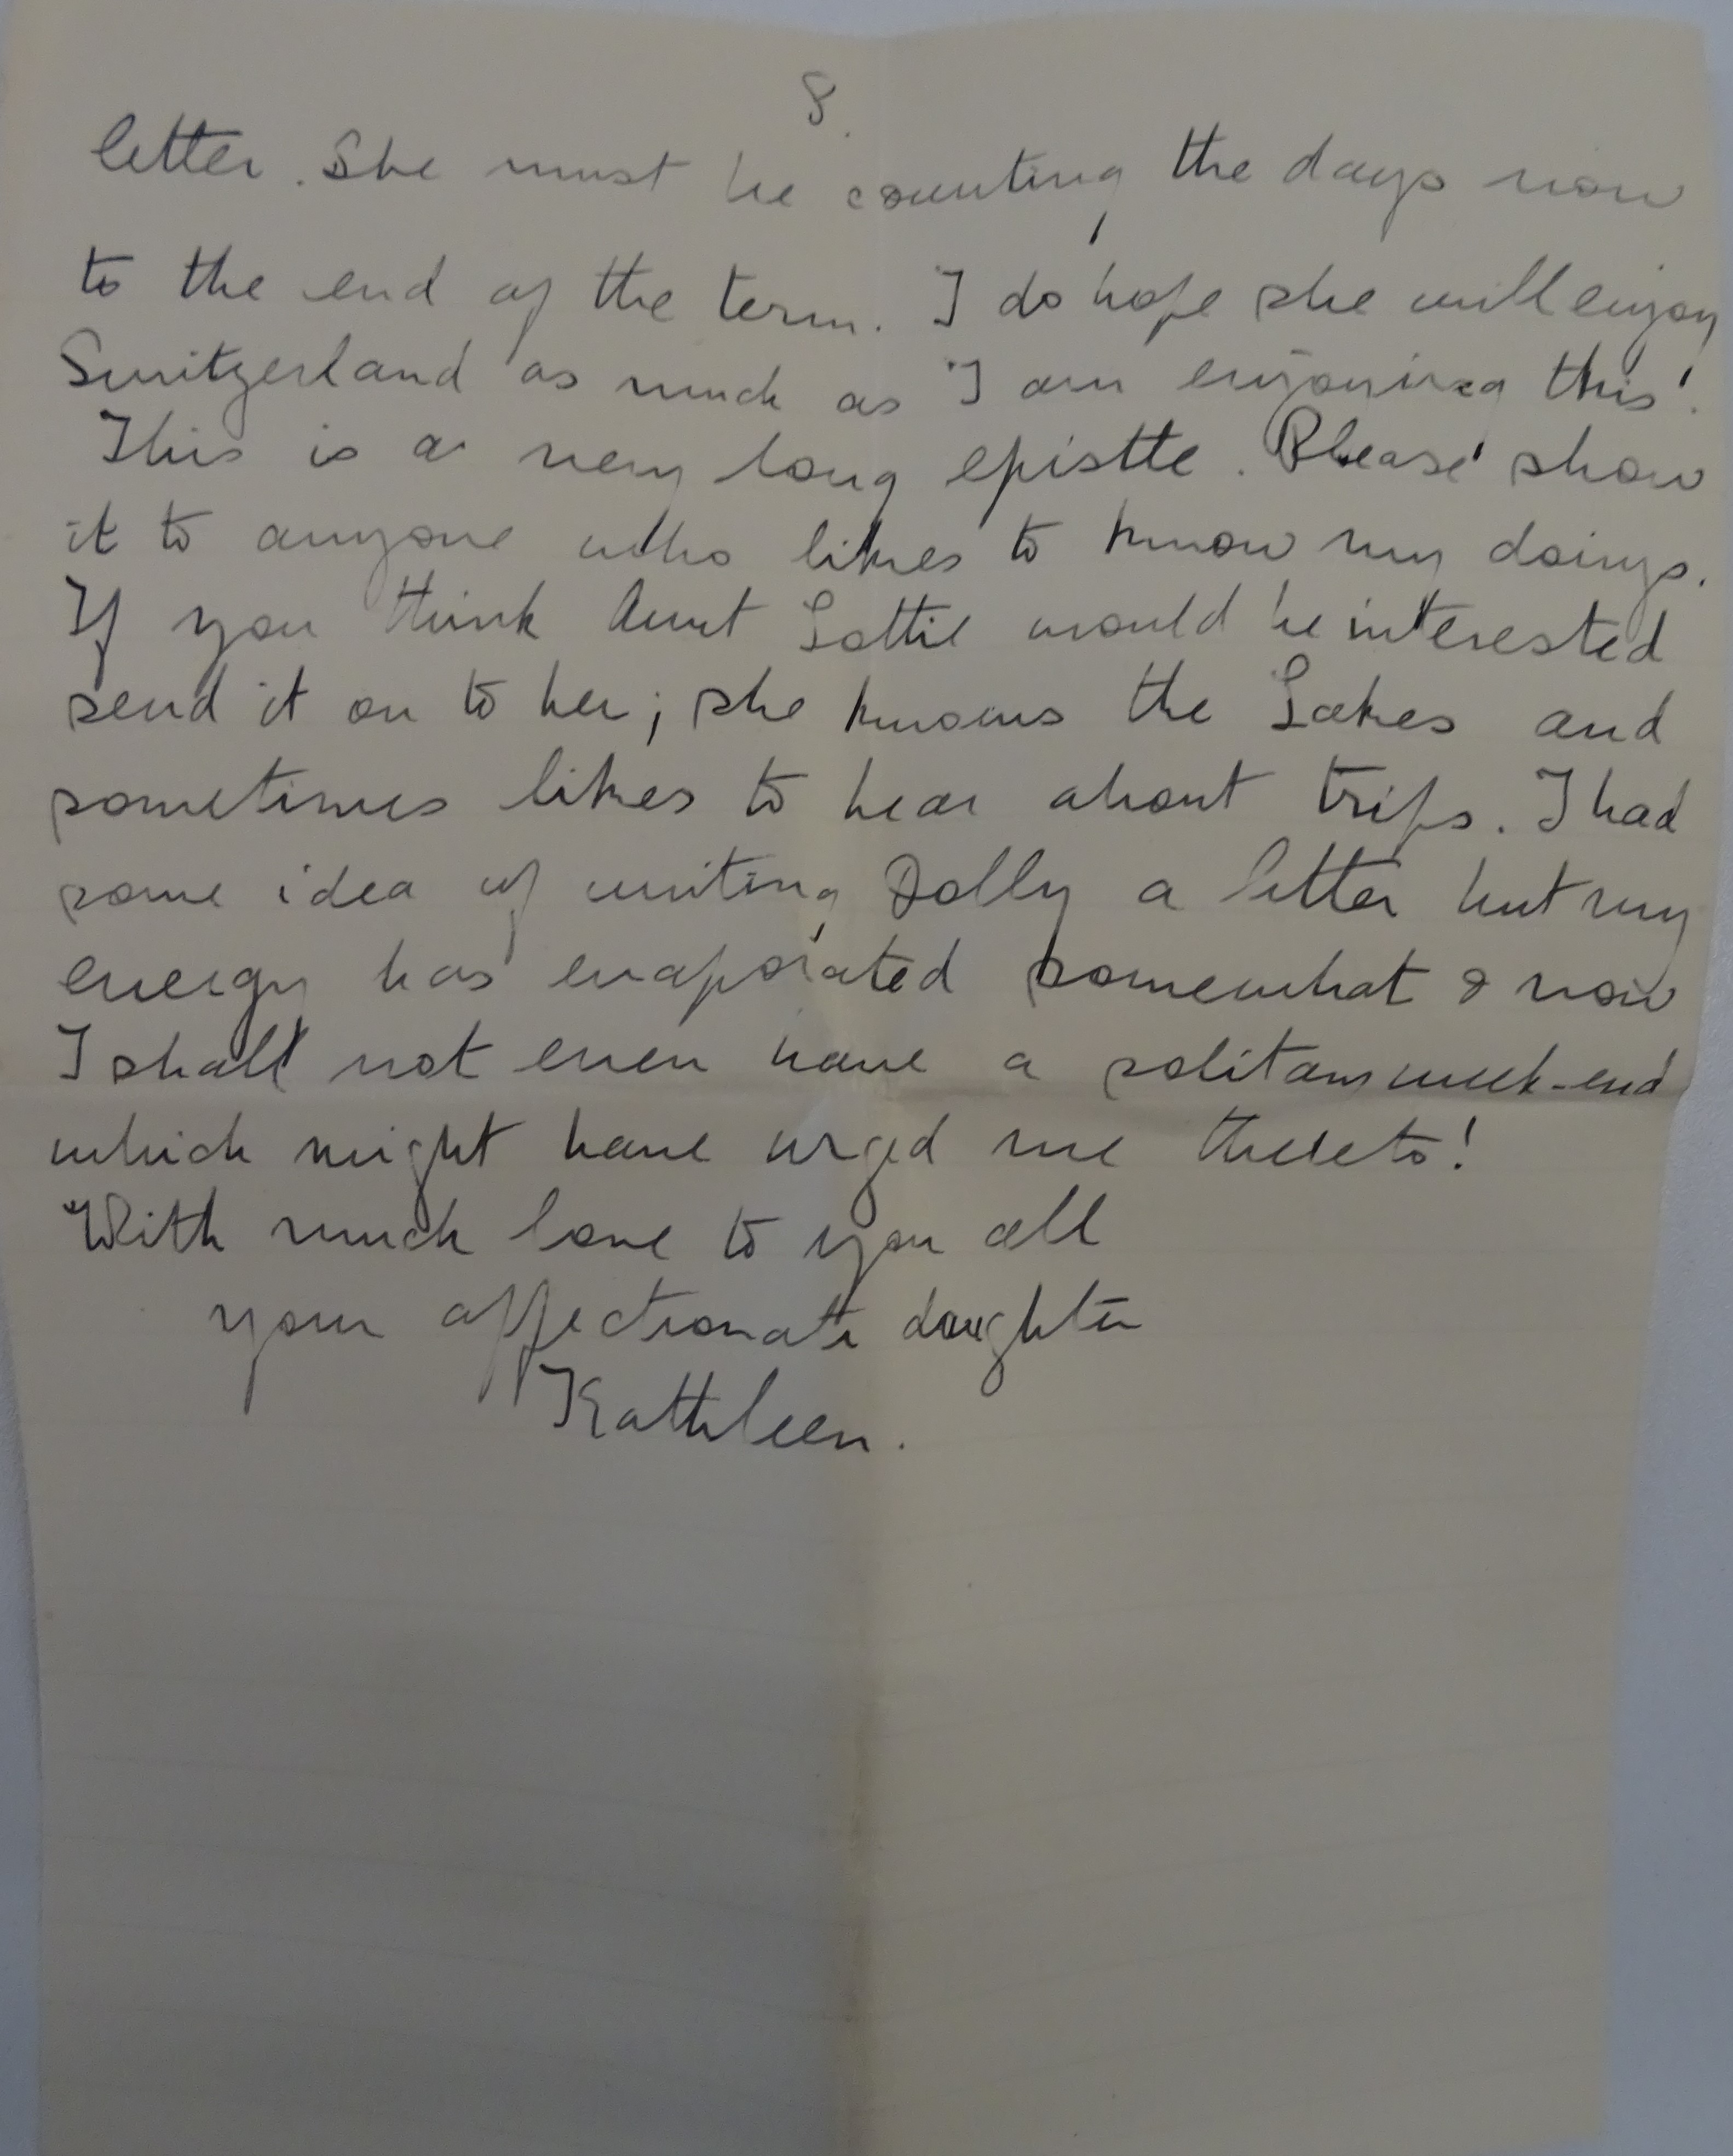 8.
letter. She must be counting the days now
to the end of the term. I do hope she will enjoy
Switzerland as much as I am enjoying this!
This is a very long epistle. Please show
it to anyone who likes to know my doings.
If you think Aunt Lottie would be interested
send it on to her; she knows the Lakes and
sometimes likes to hear about trips. I had
some idea of writing Dolly a letter but my
energy has evaporated somewhat & now
I shall not even have a solitary week-end
which might have urged me thereto!
With much love to you all
your affectionate daughter
Kathleen.